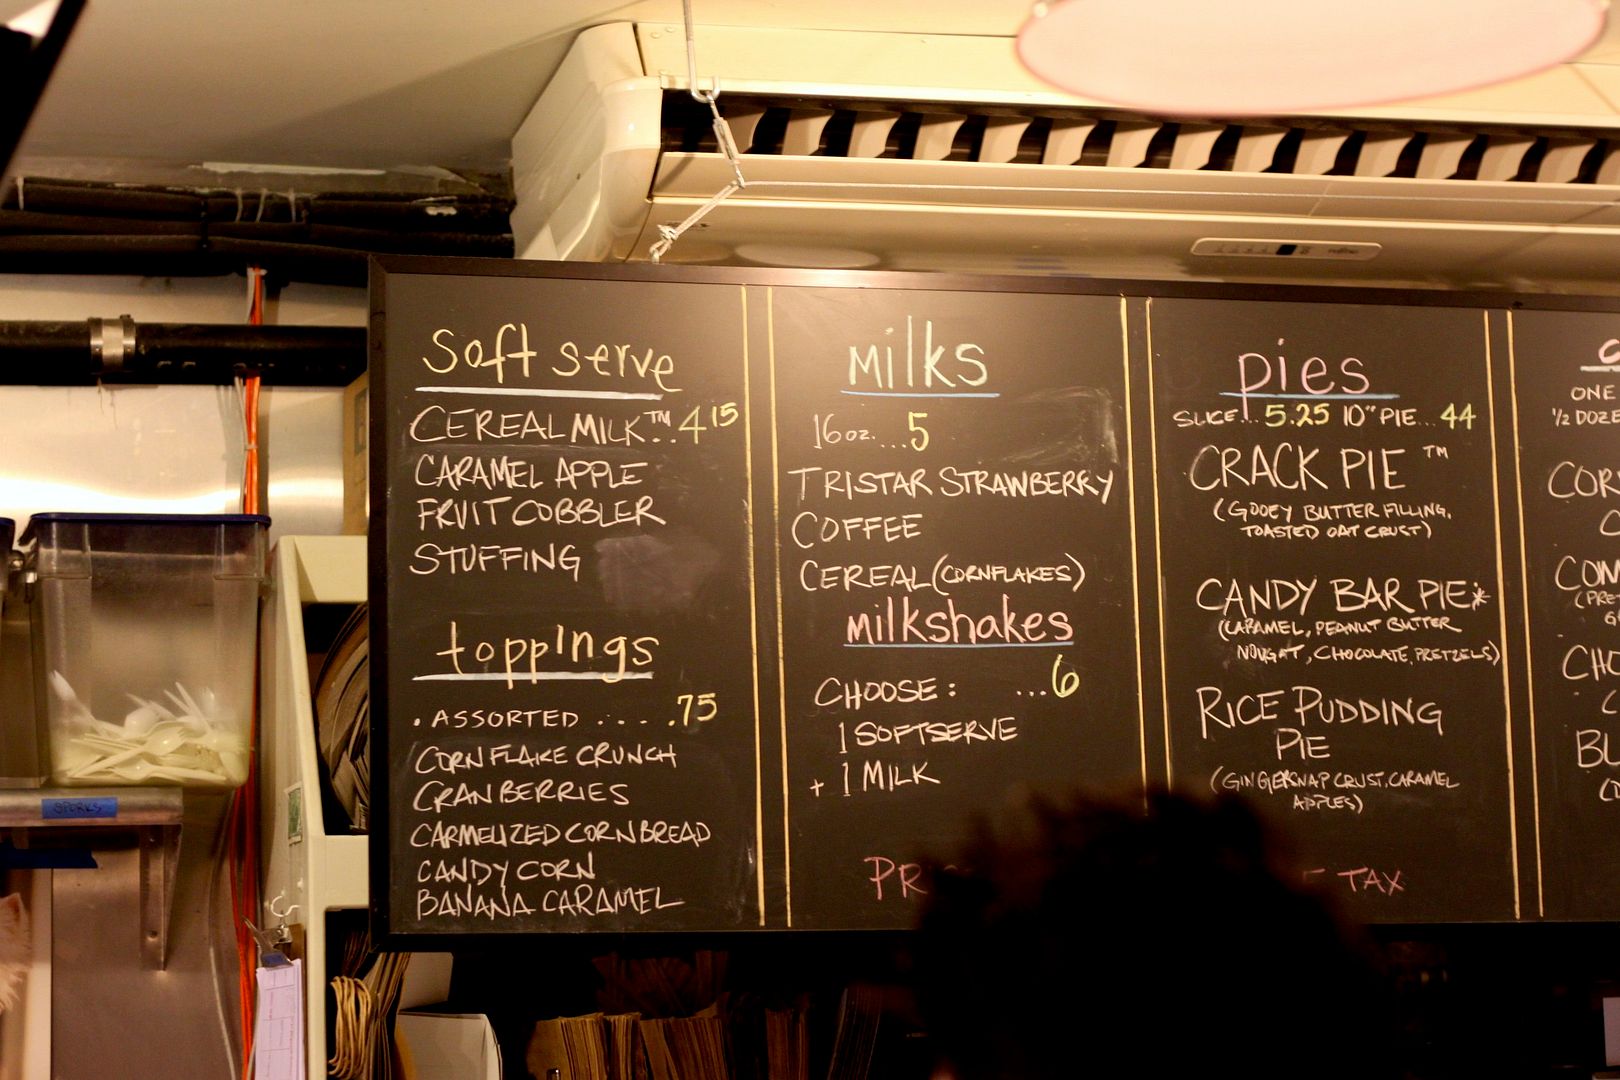 Soft serve
CEREAL MILK™..4 15
CARAMEL APPLE
FRUIT COBBLER
STUFFING
toppings
. ASSORTED . . . . .75
CORNFLAKE CRUNCH
CRANBERRIES
CARMELIZED CORNBREAD
CANDY CORN
BANANA CARAMEL
milks
16oz....5
TRISTAR STRAWBERRY
COFFEE
CEREAL (CORNFLAKES)
milkshakes
CHOOSE: ...6
1 SOFTSERVE
+ 1 MILK
pies
SLICE... 5.25 10" PIE... 44
CRACK PIE ™
(GOOEY BUTTER FILLING,
TOASTED OAT CRUST)
CANDY BAR PIE*
(CARAMEL, PEANUT BUTTER
NOUGAT, CHOCOLATE, PRETZELS)
RICE PUDDING
PIE
(GINGERSNAP CRUST, CARAMEL
APPLES)
TAX
ONE
1/2 DOZE
SPORKS